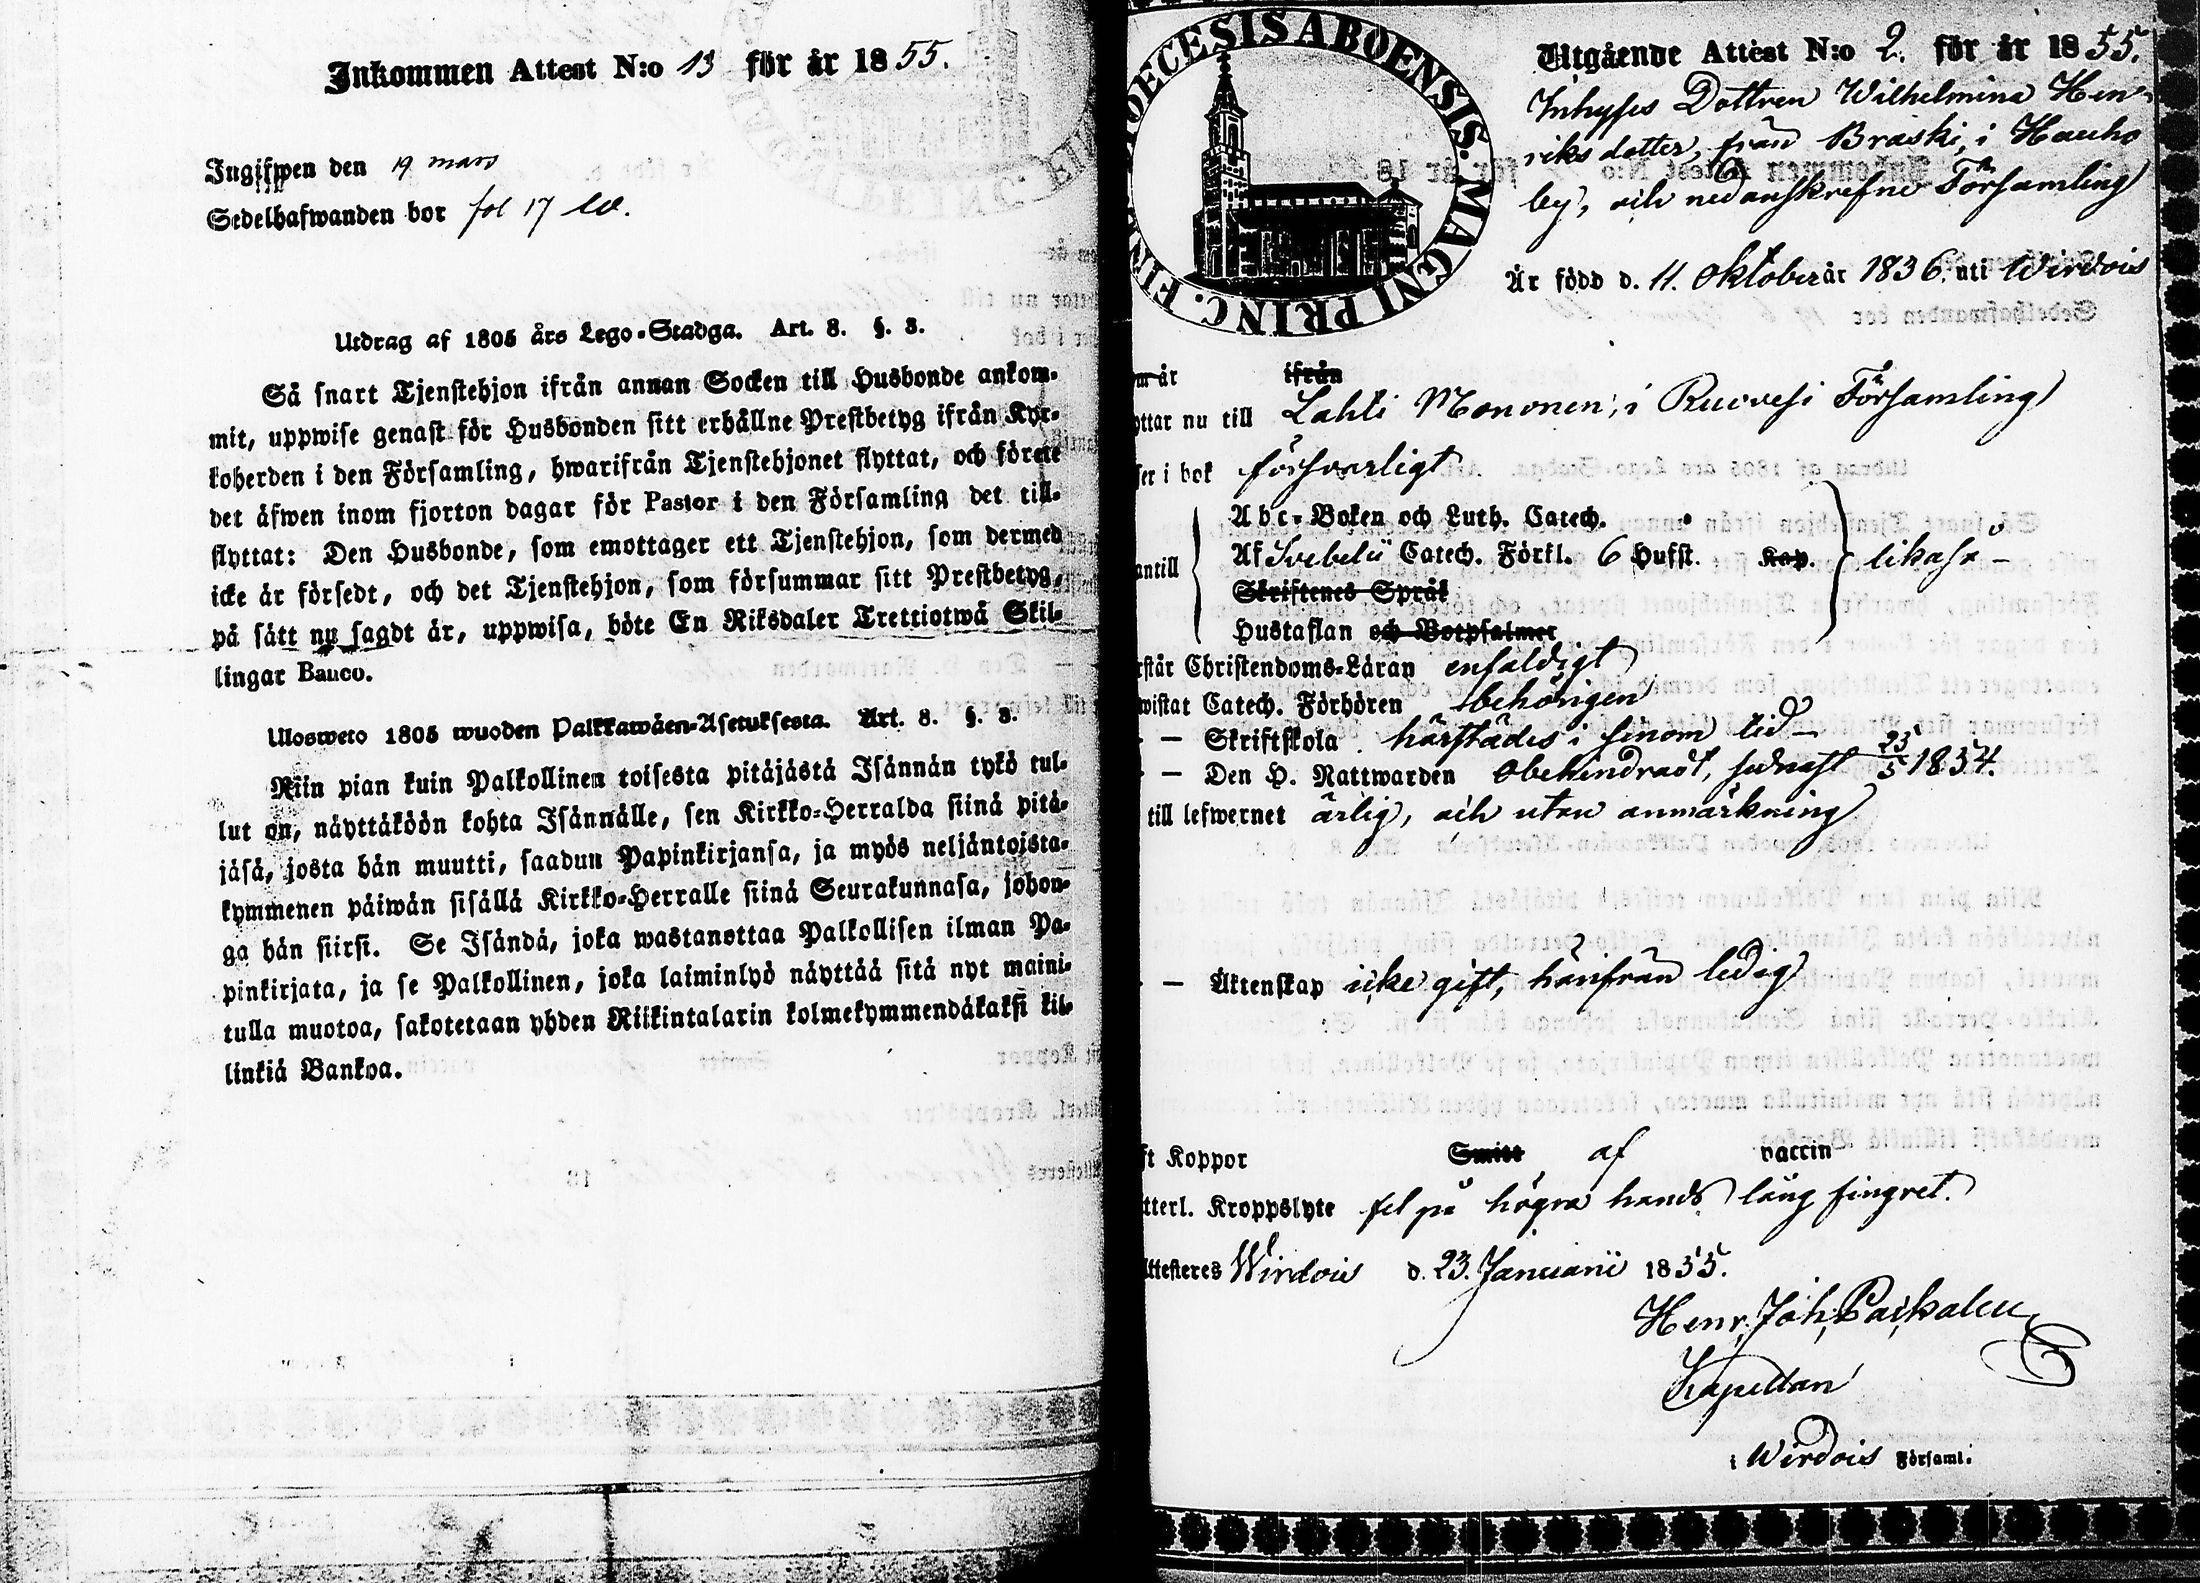 Inkommen Attest N:o 13 för år 1855.
Ingifwen den 19 mars
Sedelhafwanden bor fol 17
Utdrag af 1805 års Lego-Stadga. Art. 8. §. 3.
Så snart Tjenstehjon ifrån annan Socken till Husbonde ankom-
mit, uppwise genast för Husbonden sitt erhållne Prestbetyg ifrån Kyr-
koherden i den Församling, hwarifrån Tjenstehjonet flyttat, och förete
det äfwen inom fjorton dagar för Pastor i den Församling det till-
flyttat: Den Husbonde, som emottager ett Tjenstehjon, som dermed
icke är försedt, och det Tjenstehjon, som försummar sitt Prestbetyg,
på sätt nu sagdt är, uppwisa, böte En Riksdaler Trettiotwå Skil-
lingar Banco.
Ulosweto 1805 wuoden Palkkawäen-Asetuksesta. Art. 8. §. 3.
Niin pian kuin Palkollinen toisesta pitäjästä Isännän tykö tul-
lut on, näyttäköön kohta Isännälle, sen Kirkko-Herralda siinä pitä-
jäsä, josta hän muutti, saadun Papinkirjansa, ja myös neljäntoista-
kymmenen päiwän sisällä Kirkko-Herralle siinä Seurakunnasa, johon-
ga hän siirsi. Se Isändä, joka wastanottaa Palkollisen ilman Pa-
pinkirjata, ja se Palkollinen, joka laiminlyö näyttää sitä nyt maini-
tulla muotoa, sakotetaan yhden Riikintalarin kolmekymmendäkaksi kil-
linkiä Bankoa.
DECESIS ABOENSIS. MAGNI PRINC. FIN
Utgående Attest N:o 2. för år 1855.
Inhyses Dottren Wilhelmina Hen-
riksdotter, från Braski, i Hauho
by, och nedanskrefne Församling
Är född d. 11. Oktober år 1836. uti Wirdois
m år ifrån
yttar nu till Lahti Mononen, i Ruovesi Församling
ser i bok försvarligt
Abc-Boken och Luth. Catech.
antill Af Svebelii Catech. Förkl. 6 Hufst. Kap. likaså –
Skriftenes Språk
Hustaflan och Botpsalmer
rstår Christendoms-Läran enfaldigt
wistat Catech. Förhören behörigen
– Skriftskola härstädes i sinom tid –
– Den H. Nattwarden obehindradt, sednast 25/5 1854.
till lefwernet ärlig, och utan anmärkning
– Äktenskap icke gift, härifrån ledig
ft Koppor Smitt af vaccin
tterl. Kroppslyte fel på högra hands lång fingret.
Attesteres Wirdois d. 23. Januarii 1855.
Henr. Joh.
Kapellan
i Wirdois Församl.